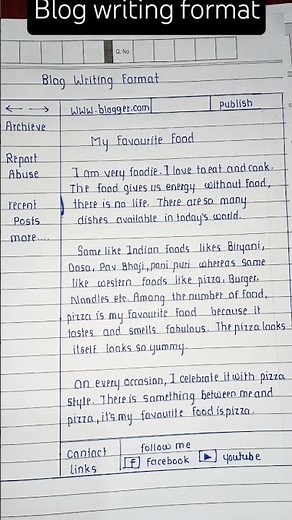 Blog writing format
Q. No.
Blog Writing Format
← → www.blogger.com Publish
Archieve
My Favourite Food
Report
Abuse
recent
Posts
more....
I am very foodie. I love to eat and cook.
The food gives us energy without food,
there is no life. There are so many
dishes available in today's world.
Some like Indian foods likes Biryani,
Dosa, Pav Bhaji, pani puri whereas some
like western foods like pizza, Burger,
Noodles etc. Among the number of food,
pizza is my favourite food because it
tastes and smells fabulous. The pizza looks
itself looks so yummy.
On every occasion, I celebrate it with pizza
style. There is something between me and
pizza, it's my favourite food is pizza.
Contact
links
follow me
f facebook youtube